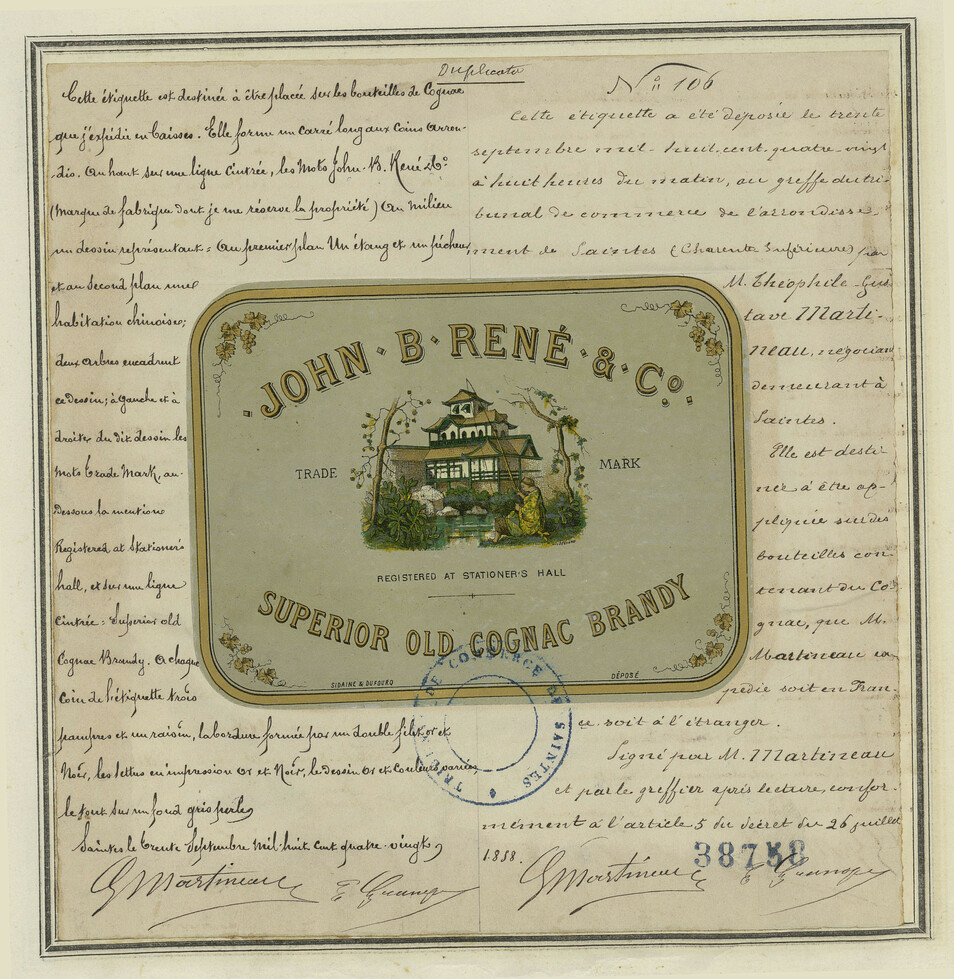 Duplicata
Cette étiquette est destinée à être placée sur les bouteilles de Cognac
que j'expédie en Caisses. Elle forme un carré long aux coins arron-
dis. En haut sur une ligne cintrée, les Mots John. B. René & Co
(Marque de fabrique dont je me réserve la propriété) Au milieu
un dessin représentant = Au premier plan Un étang et un pécheur,
et au Second plan une
habitation chinoise;
deux arbres encadrent
ce dessin; à gauche et à
droite du dit dessin les
mots Trade Mark, au-
dessous la mention
Registered at Stationer's
hall, et sur une ligne
Cintrée = Superior old
Cognac Brandy. A chaque
Coin de l'étiquette trois
pampres et un raisin, la bordure formée par un double filet or et
Noir, les lettres en impression or et Noir, le dessin or et Couleurs variées
le tout sur un fond gris perle,
Saintes le Trente Septembre Mil huit Cent quatre-vingt,
G Martineau
Nº 106
Cette étiquette a été déposée le trente
septembre mil-huit-cent-quatre-vingt
à huit heures du matin, au greffe du tri-
bunal de commerce de l'arrondisse-
ment de Saintes (Charente Inférieure) par
M. Théophile-Gus
tave Marti-
neau, négociant
demeurant à
Saintes.
Elle est desti
née à être ap-
pliquée sur des
bouteilles con
tenant du Co
gnac, que M.
Martineau ex
pédie soit en Fran
ce soit à l'étranger.
Signé par M. Martineau
et par le greffier après lecture, confor-
mément à l'article 5 du décret du 26 juillet
1858.
38758
G Martineau
JOHN · B · RENÉ · & · Co.
TRADE MARK
REGISTERED AT STATIONER'S HALL
SUPERIOR OLD COGNAC BRANDY
SIDAINE & DUFOURQ
DÉPOSÉ
TRIBUNAL DE COMMERCE DE SAINTES